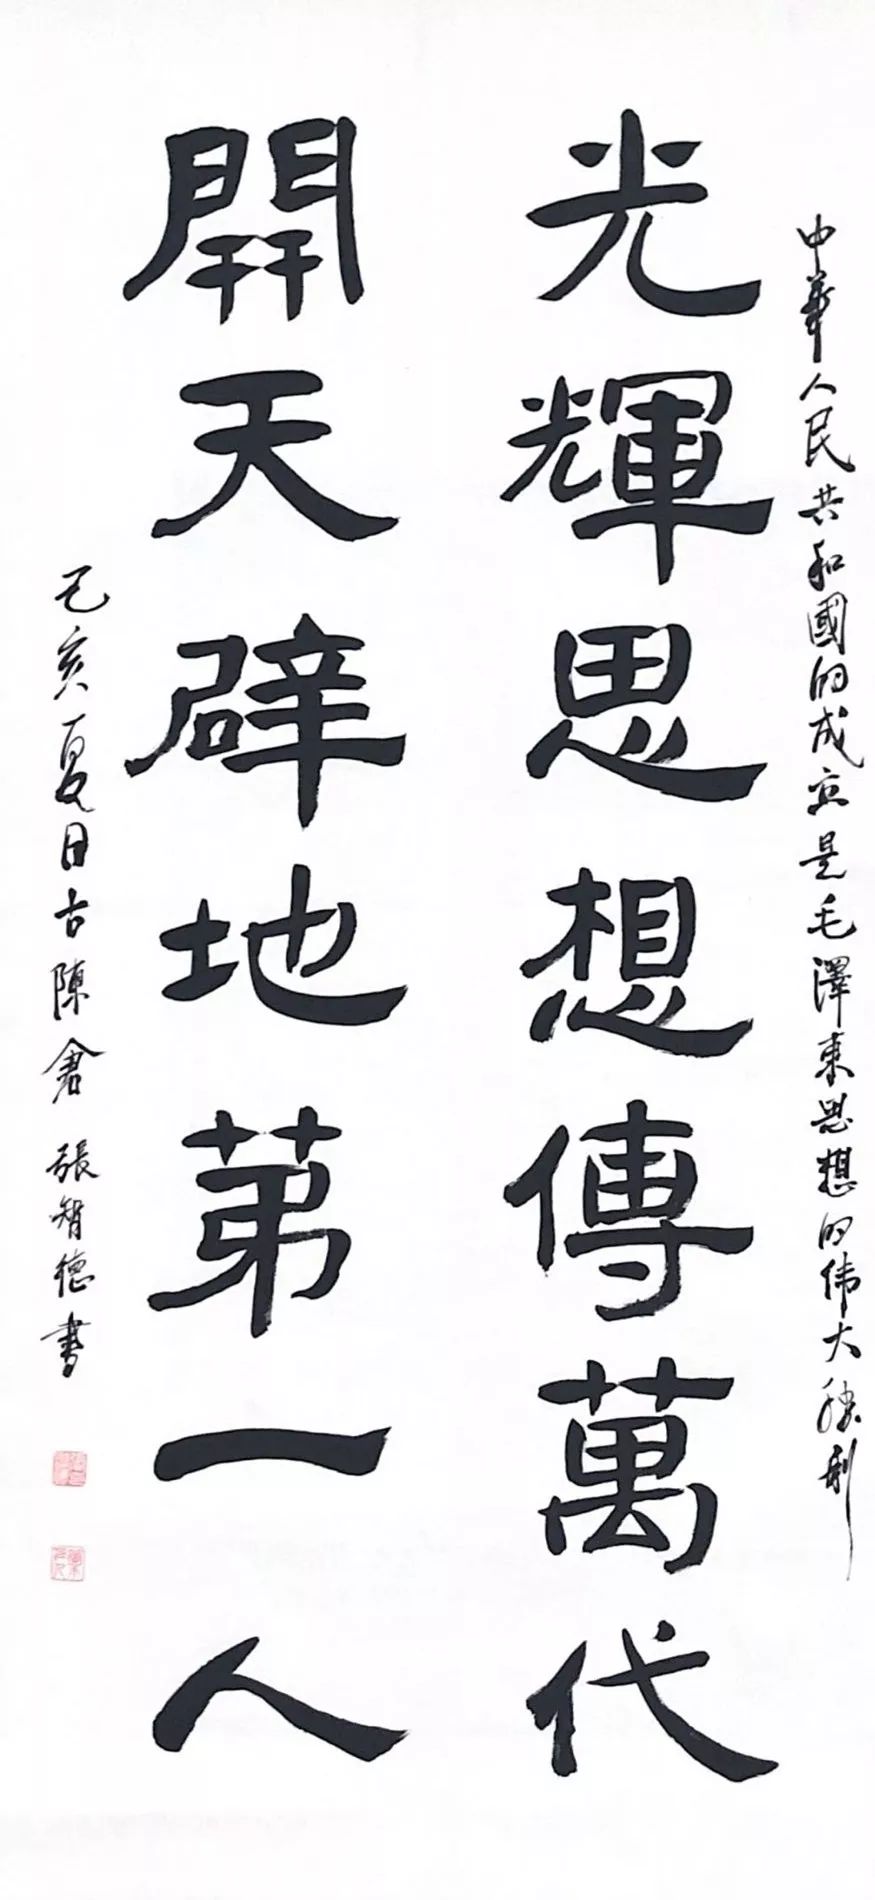 中華人民共和國的成立是毛澤東思想的伟大胜利
光輝思想傳萬代
開天辟地第一人
己亥夏日古陳倉張智德書